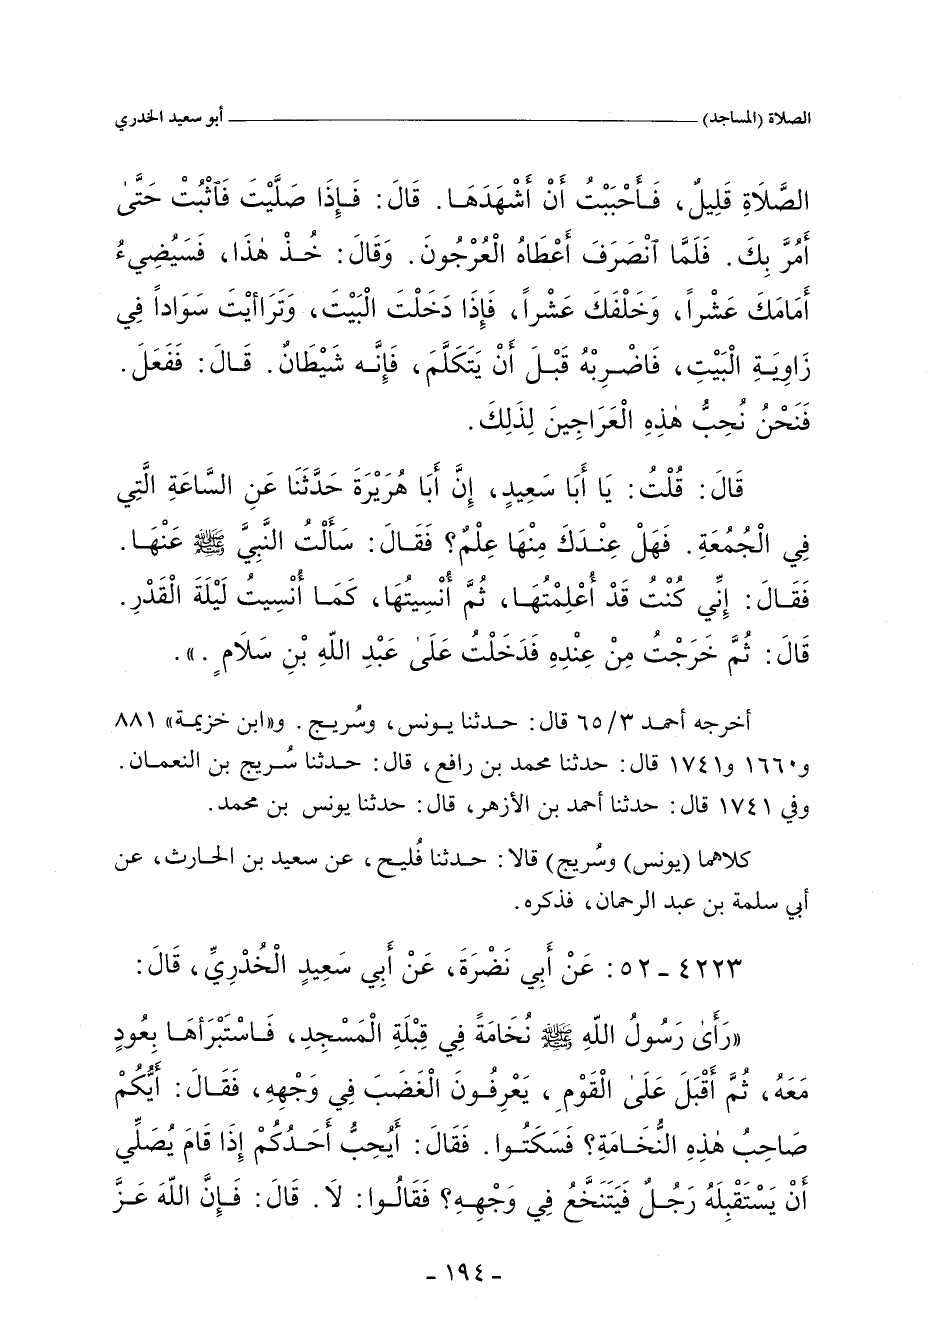 الصلاة (المساجد) ــــــــــــــــ أبو سعيد الخدري
الصَّلَاةِ قَلِيلٌ، فَأَحْبَبْتُ أَنْ أَشْهَدَهَا. قَالَ: فَإِذَا صَلَّيْتَ فَآثْبُتْ حَتَّىٰ
أَمُرَّ بِكَ. فَلَمَّا آنْصَرَفَ أَعْطَاهُ الْعُرْجُونَ. وَقَالَ: خُذْ هٰذَا، فَسَيُضِيءُ
أَمَامَكَ عَشْراً، وَخَلْفَكَ عَشْراً، فَإِذَا دَخَلْتَ الْبَيْتَ، وَتَرَاأَيْتَ سَوَاداً فِي
زَاوِيَةِ الْبَيْتِ، فَاضْرِبْهُ قَبْلَ أَنْ يَتَكَلَّمَ، فَإِنَّه شَيْطَانٌ. قَالَ: فَفَعَلَ.
فَنَحْنُ نُحِبُّ هٰذِهِ الْعَرَاجِينَ لِذَلِكَ.
قَالَ: قُلْتُ: يَا أَبَا سَعِيدٍ، إِنَّ أَبَا هُرَيْرَةَ حَدَّثَنَا عَنِ السَّاعَةِ الَّتِي
فِي الْجُمُعَةِ. فَهَلْ عِنْدَكَ مِنْهَا عِلْمٌ؟ فَقَالَ: سَأَلْتُ النَّبِيَّ ﷺ عَنْهَا.
فَقَالَ: إِنِّي كُنْتُ قَدْ أُعْلِمْتُهَا، ثُمَّ أُنْسِيتُهَا، كَمَا أُنْسِيتُ لَيْلَةَ الْقَدْرِ.
قَالَ: ثُمَّ خَرَجْتُ مِنْ عِنْدِهِ فَدَخَلْتُ عَلَىٰ عَبْدِ اللّهِ بْنِ سَلَامٍ.».
أخرجه أحمد ٦٥/٣ قال: حدثنا يونس، وسُريج. و«ابن خزيمة» ٨٨١
و١٦٦٠ و١٧٤١ قال: حدثنا محمد بن رافع، قال: حدثنا سُريج بن النعمان.
وفي ١٧٤١ قال: حدثنا أحمد بن الأزهر، قال: حدثنا يونس بن محمد.
كلاهما (يونس) وسُريج) قالا: حدثنا فُليح، عن سعيد بن الحارث، عن
أبي سلمة بن عبد الرحمان، فذكره.
٤٢٢٣ - ٥٢: عَنْ أَبِي نَضْرَةَ، عَنْ أَبِي سَعِيدٍ الْخُدْرِيِّ، قَالَ:
«رَأَىٰ رَسُولُ اللّهِ ﷺ نُخَامَةً فِي قِبْلَةِ الْمَسْجِدِ، فَاسْتَبْرَأَهَا بِعُودٍ
مَعَهُ، ثُمَّ أَقْبَلَ عَلَىٰ الْقَوْمِ، يَعْرِفُونَ الْغَضَبَ فِي وَجْهِهِ، فَقَالَ: أَيُّكُمْ
صَاحِبُ هٰذِهِ النُّخَامَةِ؟ فَسَكَتُوا. فَقَالَ: أَيُحِبُّ أَحَدُكُمْ إِذَا قَامَ يُصَلِّي
أَنْ يَسْتَقْبِلَهُ رَجُلٌ فَيَتَنَخَّعُ فِي وَجْهِهِ؟ فَقَالُوا: لَا. قَالَ: فَإِنَّ اللّهَ عَزَّ
- ١٩٤ -